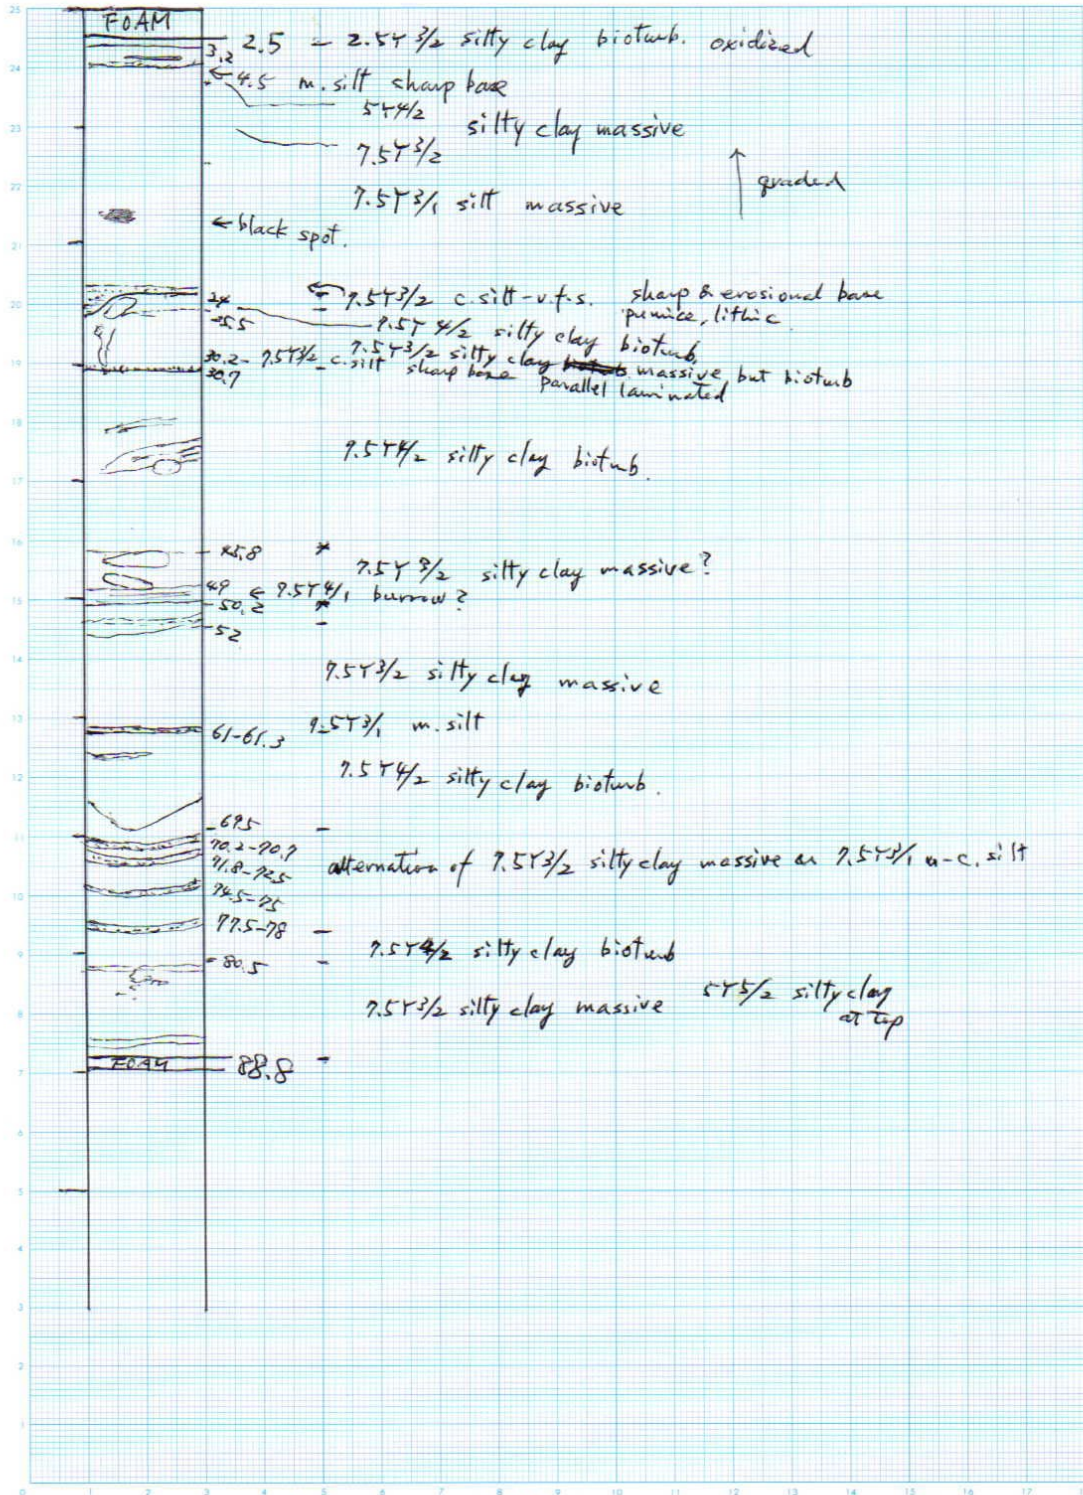 FOAM
2.5 - 2.5Y 3/2 silty clay bioturb. oxidized
3.2
← 4.5 m. silt sharp base
5Y4/2
silty clay massive
7.5Y 3/2
7.5Y 3/1 silt massive
↑ graded
← black spot.
24 7.5Y 3/2 c. silt-v.f.s. sharp & erosional base
pumice, lithic
25.5 7.5Y 4/2 silty clay bioturb.
7.5Y 3/2 silty clay massive, but bioturb
30.2- 7.5Y 3/2 c. silt sharp base parallel laminated
30.7
7.5Y 4/2 silty clay bioturb.
45.8
7.5Y 3/2 silty clay massive?
49 ← 7.5Y 4/1 burrow?
50.2
52
7.5Y 3/2 silty clay massive
61-61.3 7.5Y 3/1 m. silt
7.5Y 4/2 silty clay bioturb.
69.5
70.2-70.7
71.8-72.5 alternation of 7.5Y 3/2 silty clay massive an 7.5Y 3/1 m-c. silt
74.5-75
77.5-78
7.5Y 4/2 silty clay bioturb
80.5
7.5Y 3/2 silty clay massive 5Y5/2 silty clay
at top
FOAM 88.8
25
24
23
22
21
20
19
18
17
16
15
14
13
12
11
10
9
8
7
6
5
4
3
2
1
0 1 2 3 4 5 6 7 8 9 10 11 12 13 14 15 16 17